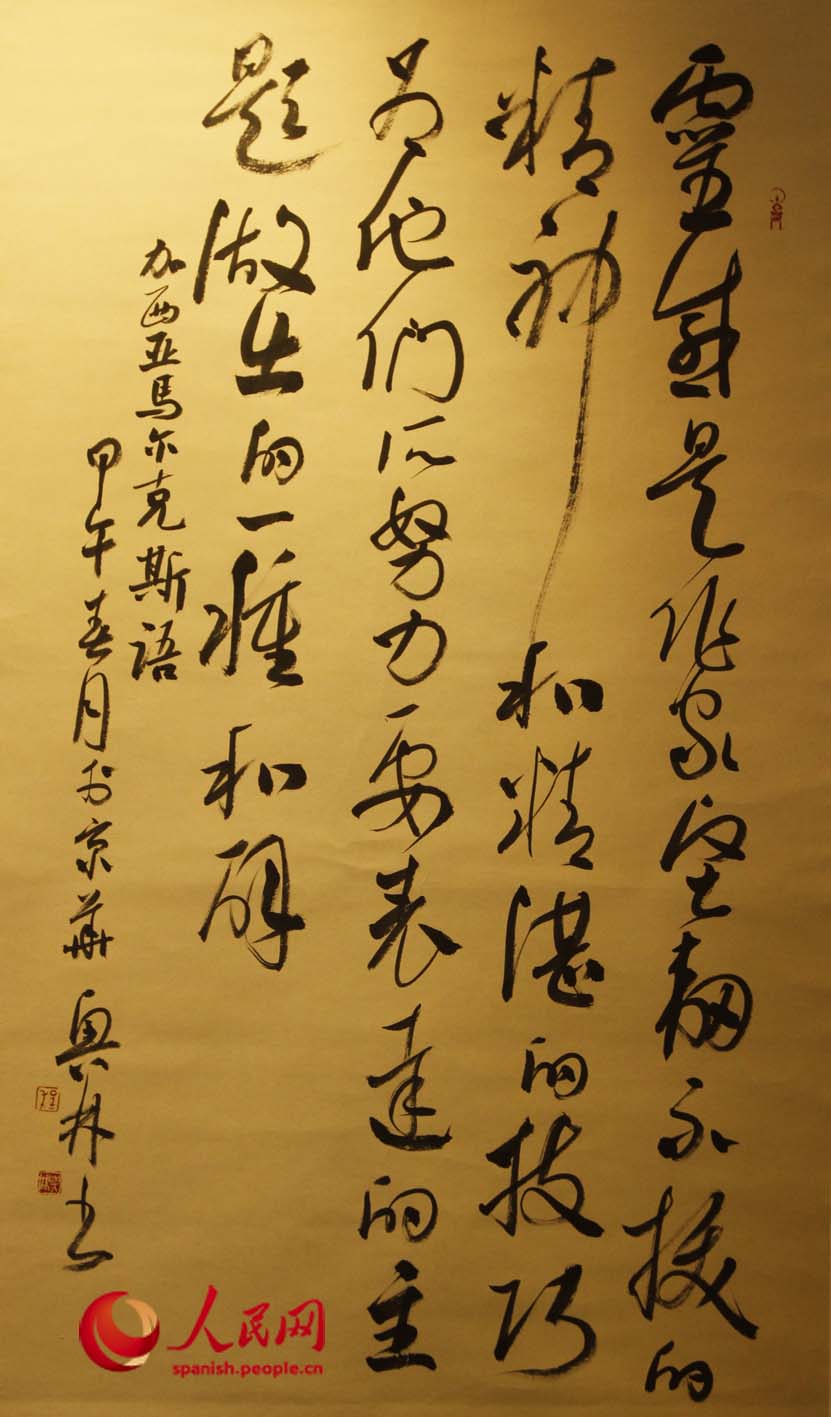 靈感是作家坚韌不拔的
精神和精湛的技巧
为他们所努力要表達的主
题做出的一種和解
加西亚馬尔克斯語
甲午春月於京華興林书
人民网
spanish.people.cn